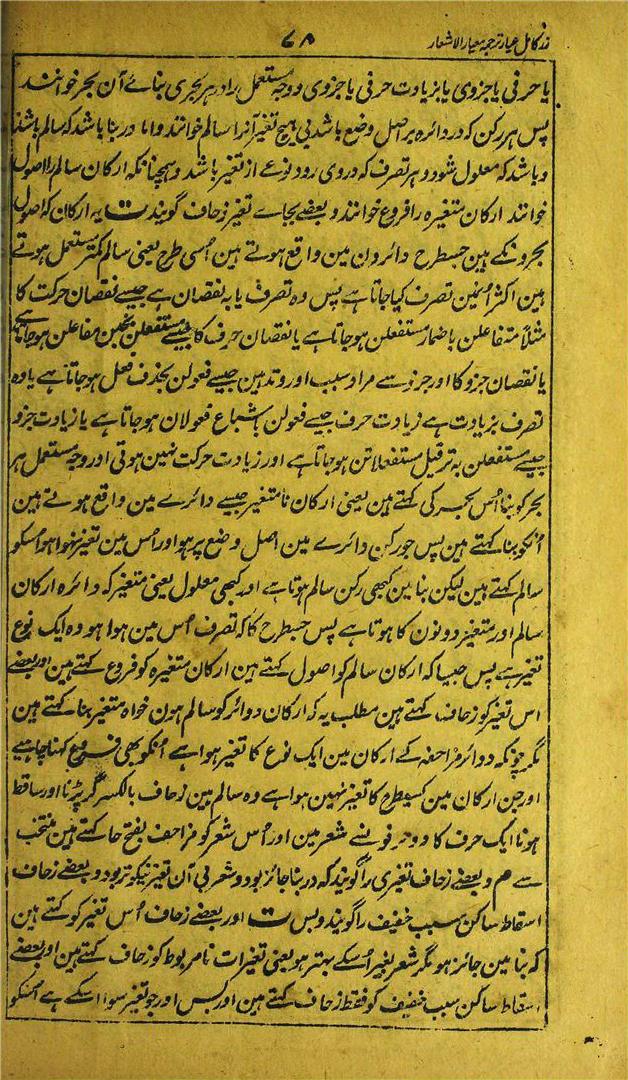 زر کامل عیار ترجمہ معیار الاشعار ۷۸
یا حرفی یا جزوی یا بزیادت حرفی یا جزوی و وجہ مستعمل را در ہر بحری بنائے آن بحر خوانند
پس ہر رکن کہ در دائرہ بر اصل وضع باشد بی ہیچ تغیر آنرا سالم خوانند و اما در بنا باشد کہ سالم باشد
و باشد کہ معلول شود و ہر تصرف کہ در وی رود نوعے از تغیر باشد و ہمچنانکہ ارکان سالم را اصول
خوانند ارکان متغیرہ را فروع خوانند و بعضے بجاے تغیر زحاف گویند ت یہ ارکان کہ اصول
بحرونکے ہین جسطرح دائرون مین واقع ہوتے ہین اُسی طرح یعنی سالم کمتر مستعمل ہوتے
ہین اکثر اُنمین تصرف کیا جاتا ہے پس وہ تصرف یا بہ نقصان ہے جیسے نقصان حرکت کا
مثلاً متفاعلن باضمار مستفعلن ہو جاتا ہے یا نقصان حرف کا جیسے مستفعلن بخبن مفاعلن ہو جاتا ہے
یا نقصان جزو کا اور جزو سے مراد سبب اور وتد ہین جیسے فعولن بحذف فعل ہو جاتا ہے یا وہ
تصرف بزیادت ہے زیادت حرف جیسے فعولن باشباع فعولان ہو جاتا ہے یا زیادت جزو
جیسے مستفعلن بہ ترفیل مستفعلاتن ہو جاتا ہے اور زیادت حرکت نہین ہوتی اور وجہ مستعمل ہر
بحر کو بنا اُس بحر کی کہتے ہین یعنی ارکان نامتغیر جیسے دائرے مین واقع ہوتے ہین
اُنکو بنا کہتے ہین پس جو رکن دائرے مین اصل وضع پر ہو اور اُس مین تغیر نہوا ہو اُسکو
سالم کہتے ہین لیکن بنا مین کبھی رکن سالم ہوتا ہے اور کبھی معلول یعنی متغیر کہ دائرہ ارکان
سالم اور متغیر دونون کا ہوتا ہے پس جسطرح کا کہ تصرف اُس مین ہوا ہو وہ ایک نوع
تغیر ہے پس جیسا کہ ارکان سالم کو اصول کہتے ہین ارکان متغیرہ کو فروع کہتے ہین اور بعضے
اس تغیر کو زحاف کہتے ہین مطلب یہ کہ ارکان دوائر کو سالم ہون خواہ متغیر بنا کہتے ہین
مگر چونکہ دوائر مزاحفہ کے ارکان مین ایک نوع کا تغیر ہوا ہے اُنکو بھی فروع کہنا چاہیے
اور جن ارکان مین کسیطرح کا تغیر نہین ہوا ہے وہ سالم ہین زحاف بالکسر گر پڑنا اور ساقط
ہونا ایک حرف کا دو حرفونسے شعر مین اور اُس شعر کو مزاحف بفتح حا کہتے ہین منتخب
سے م و بعضے زحاف تغیری را گویند کہ در بنا جائز بود و شعر بی آن تغیر نیکوتر بود و بعضے زحاف
اسقاط ساکن سبب خفیف را گویند و بس ت اور بعضے زحاف اُس تغیر کو کہتے ہین
کہ بنا مین جائز ہو مگر شعر بغیر اُسکے بہتر ہو یعنی تغیرات نامربوط کو زحاف کہتے ہین اور بعضے
اسقاط ساکن سبب خفیف کو فقط زحاف کہتے ہین اور بس اور جو تغیر سوا اسکے ہے اُسکو